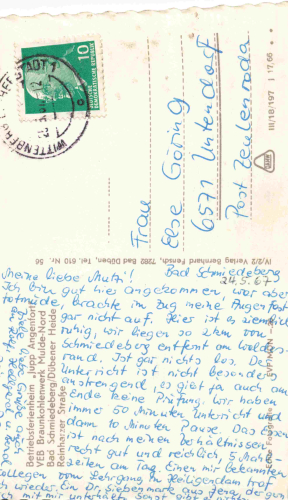 10
DEUTSCHE DEMOKRATISCHE REPUBLIK
WITTENBERG LUTHERSTADT 1
Frau
Else Göring
6571 Untendorf
Post Zeulenroda
III/18/197 | 17,66
IV/2/2 Verlag Bernhard Fensch, 7282 Bad Düben, Tel. 610 Nr. 56
Betriebsferienheim „Jupp Angenfort“
VEB Braunkohlenwerk Mulde-Nord
Bad Schmiedeberg/Dübener Heide
Reinharzer Straße
Bad Schmiedeberg
24.5.67
Meine liebe Mutti!
Ich bin gut hier angekommen, war aber
totmüde, brachte im Zug meine Augen fast
gar nicht auf. Hier ist es ziemlich
ruhig, wir liegen so 2 km von
Schmiedeberg entfernt am Waldes-
rand. Ist gar nichts los. Der
Unterricht ist nicht besonders
anstrengend, es gibt ja auch am
Ende keine Prüfung. Wir haben
immer 50 Minuten Unterricht und
dann 10 Minuten Pause. Das Essen
ist nach meinen Verhältnissen
recht gut und reichlich, 5 Mahl-
zeiten am Tag. Einen mir bekannten
Kollegen vom Lehrgang in Heiligendamm traf
ich wieder. Dr. Siebenmann aus ganz dem
mit mir unterhalten. Sonst